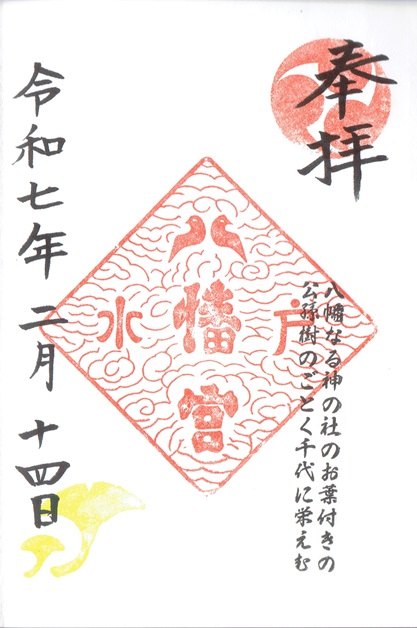 奉拝
八幡なる神の社のお葉付きの
公孫樹のごとく千代に栄えむ
水戸
八幡宮
令和七年 二月 十四日